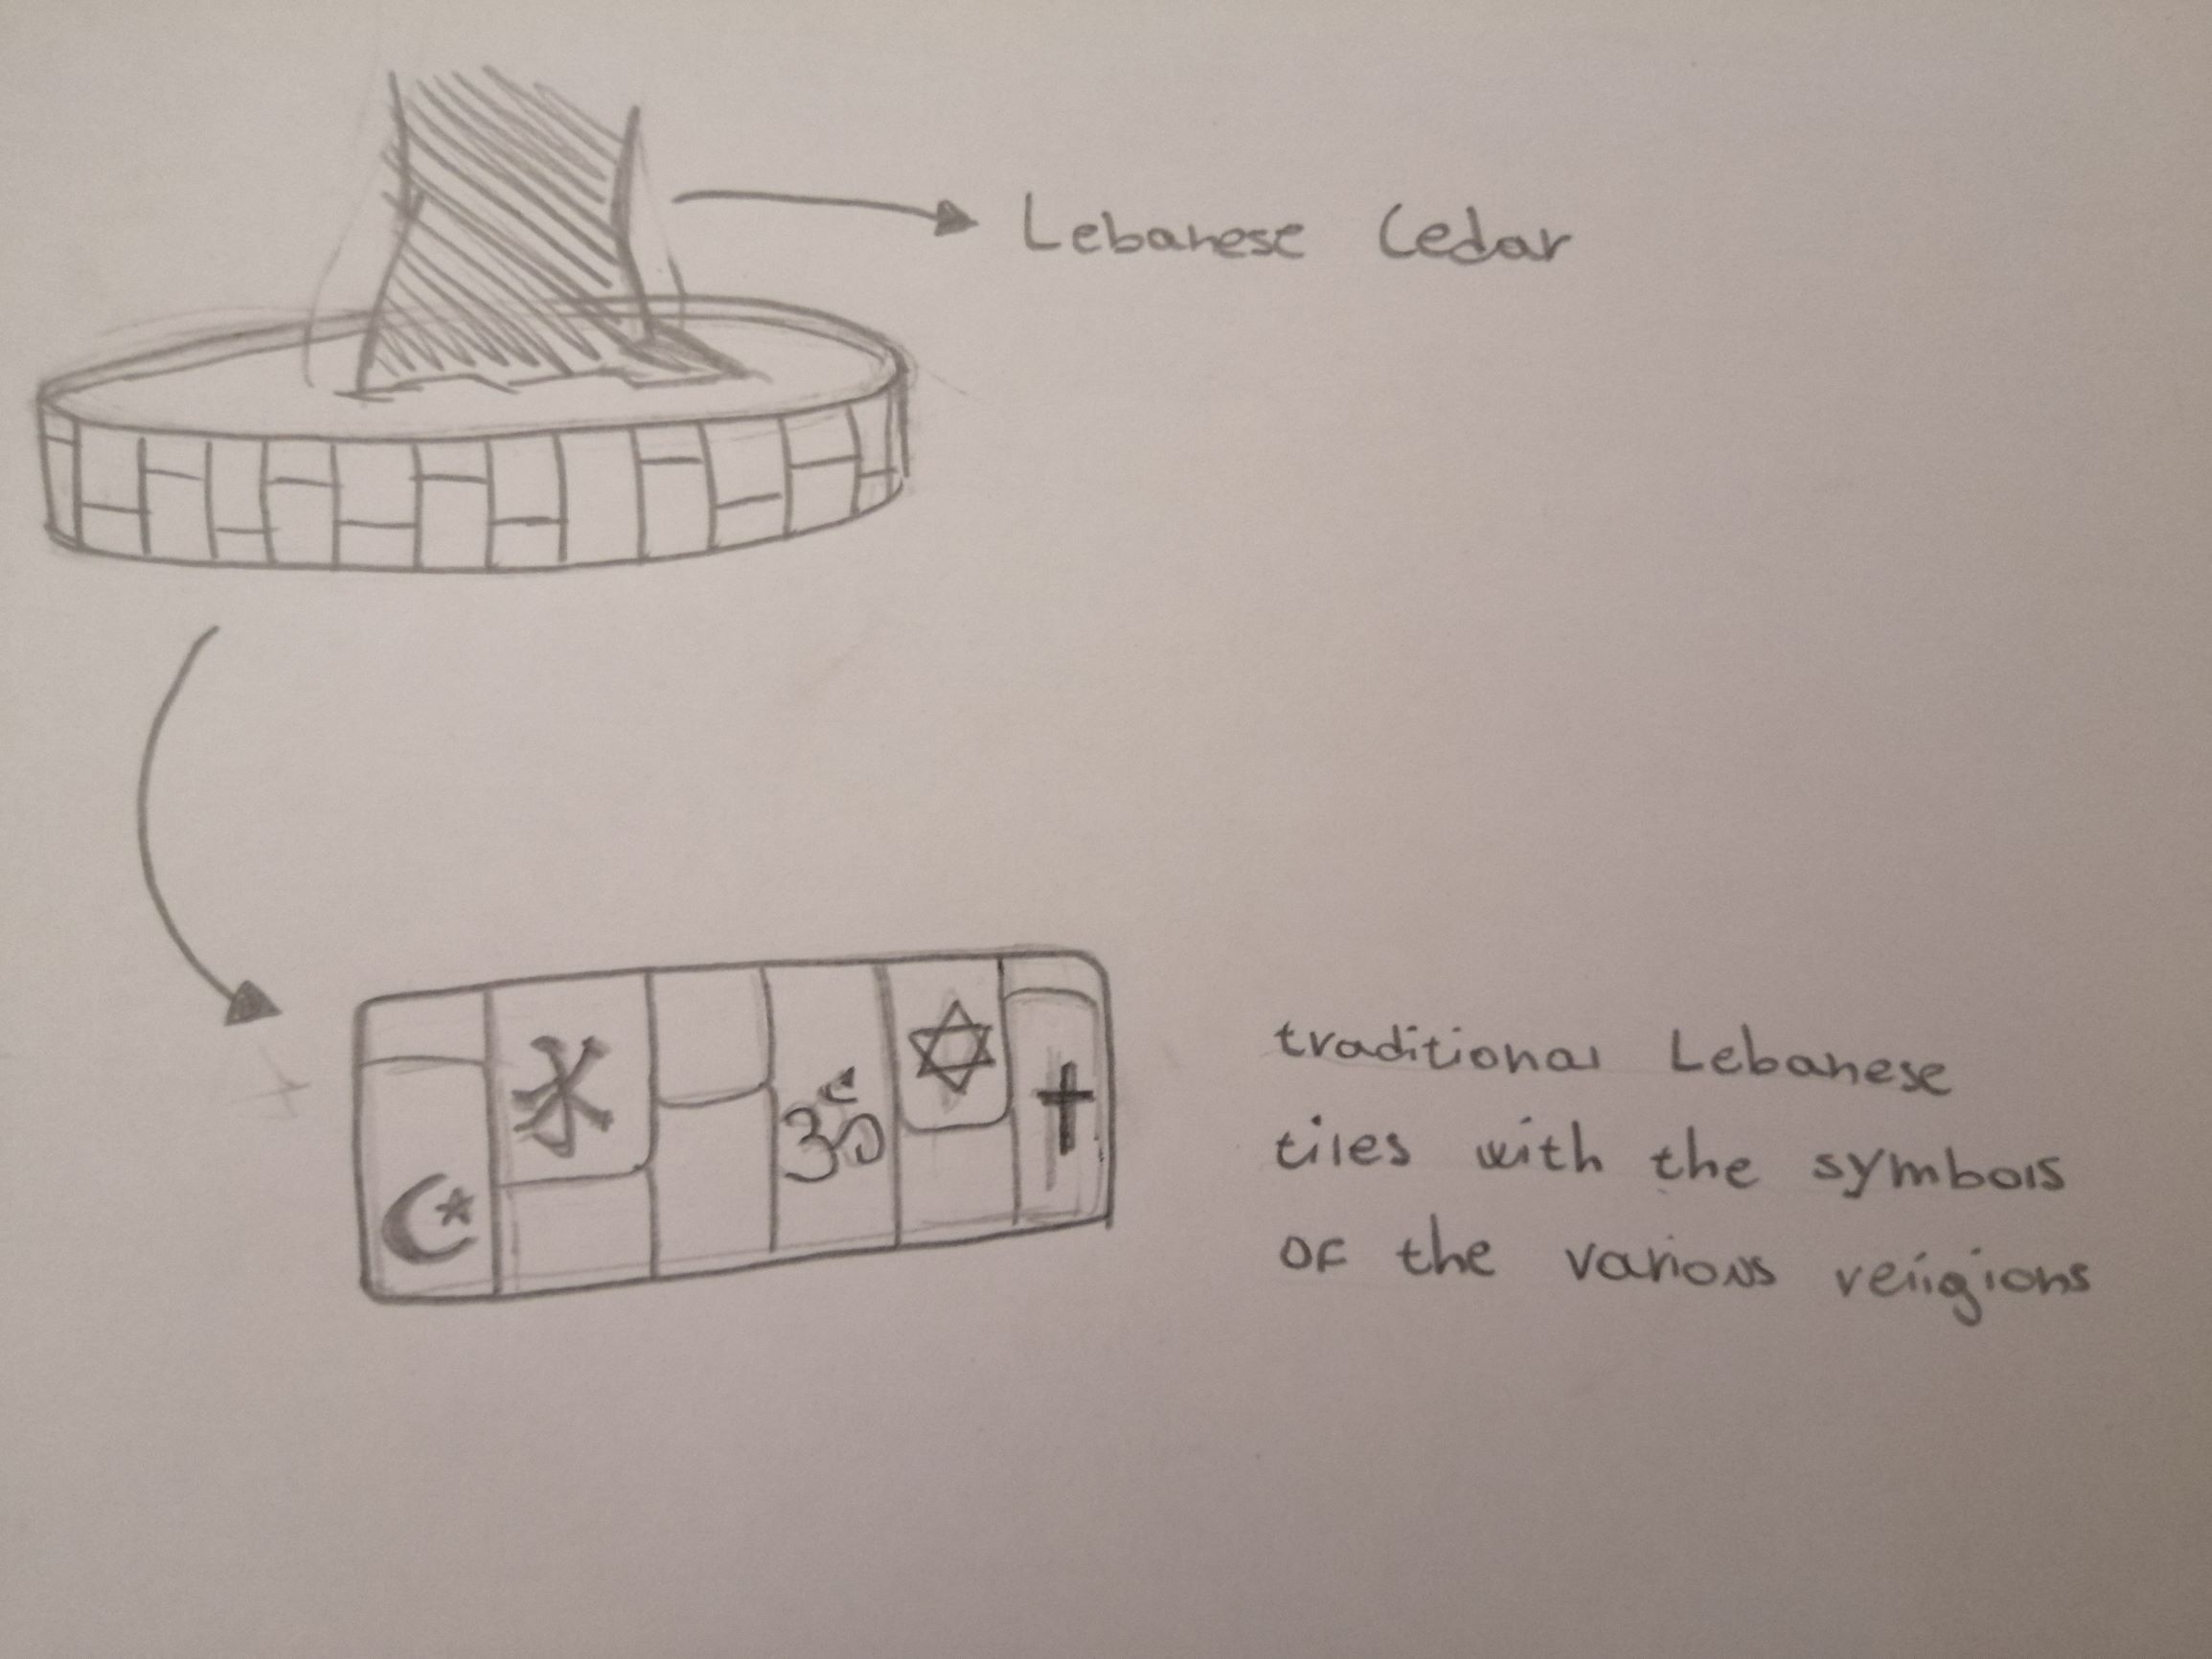 Lebanese Cedar
traditional Lebanese
tiles with the symbols
of the various religions